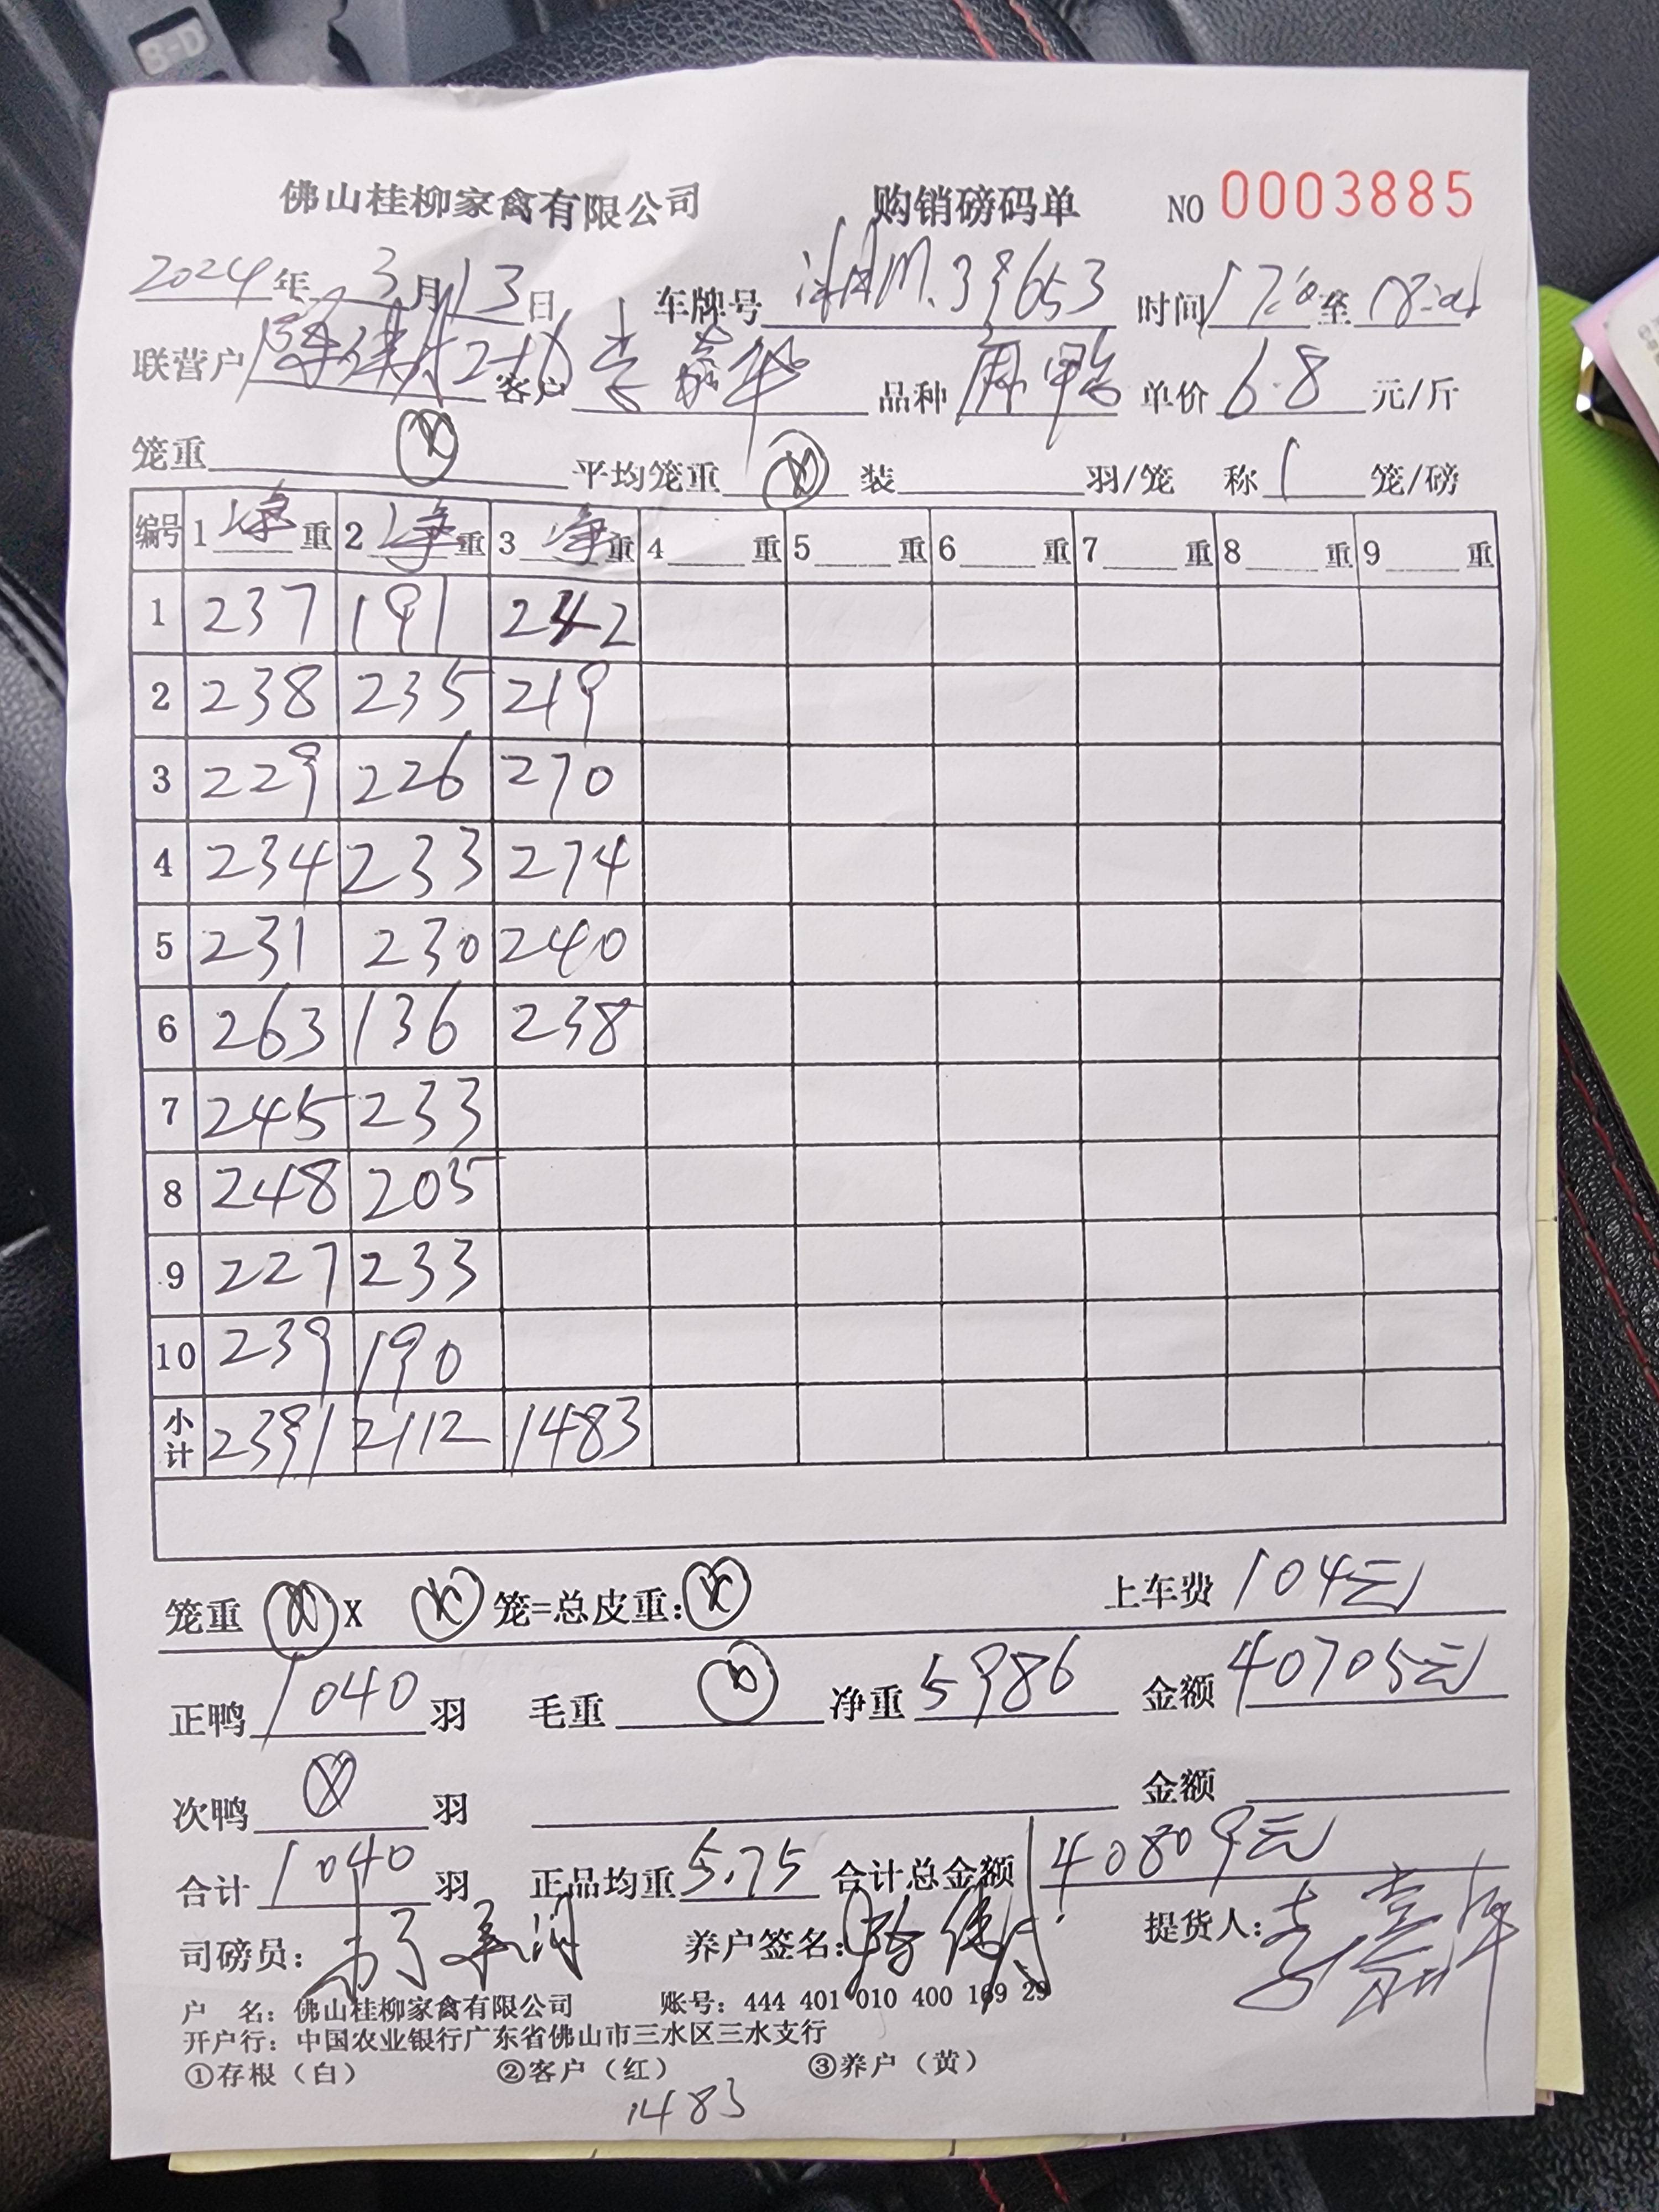 B-D
佛山桂柳家禽有限公司 购销磅码单 NO 0003885
2024年 3月13日 车牌号 M.39653 时间 至
联营户 客户 李嘉华 品种 麻鸭 单价 6.8 元/斤
笼重 ⓧ 平均笼重 ⓧ 装 羽/笼 称 1 笼/磅
编号 1 净 重 2 净 重 3 净 重 4 重 5 重 6 重 7 重 8 重 9 重
1 237 191 242
2 238 235 219
3 229 226 270
4 234 233 274
5 231 230 240
6 263 136 238
7 245 233
8 248 205
9 227 233
10 239 190
小计 2391 2112 1483
笼重 ⓧ X ⓧ 笼=总皮重: ⓧ 上车费 104元
正鸭 1040 羽 毛重 ⓧ 净重 5986 金额 40705元
次鸭 ⓧ 羽 金额
合计 1040 羽 正品均重 5.75 合计总金额 40809元
司磅员: 养户签名: 提货人: 李嘉华
户 名: 佛山桂柳家禽有限公司 账号: 444 401 010 400 169 29
开户行: 中国农业银行广东省佛山市三水区三水支行
①存根（白） ②客户（红） ③养户（黄）
1483